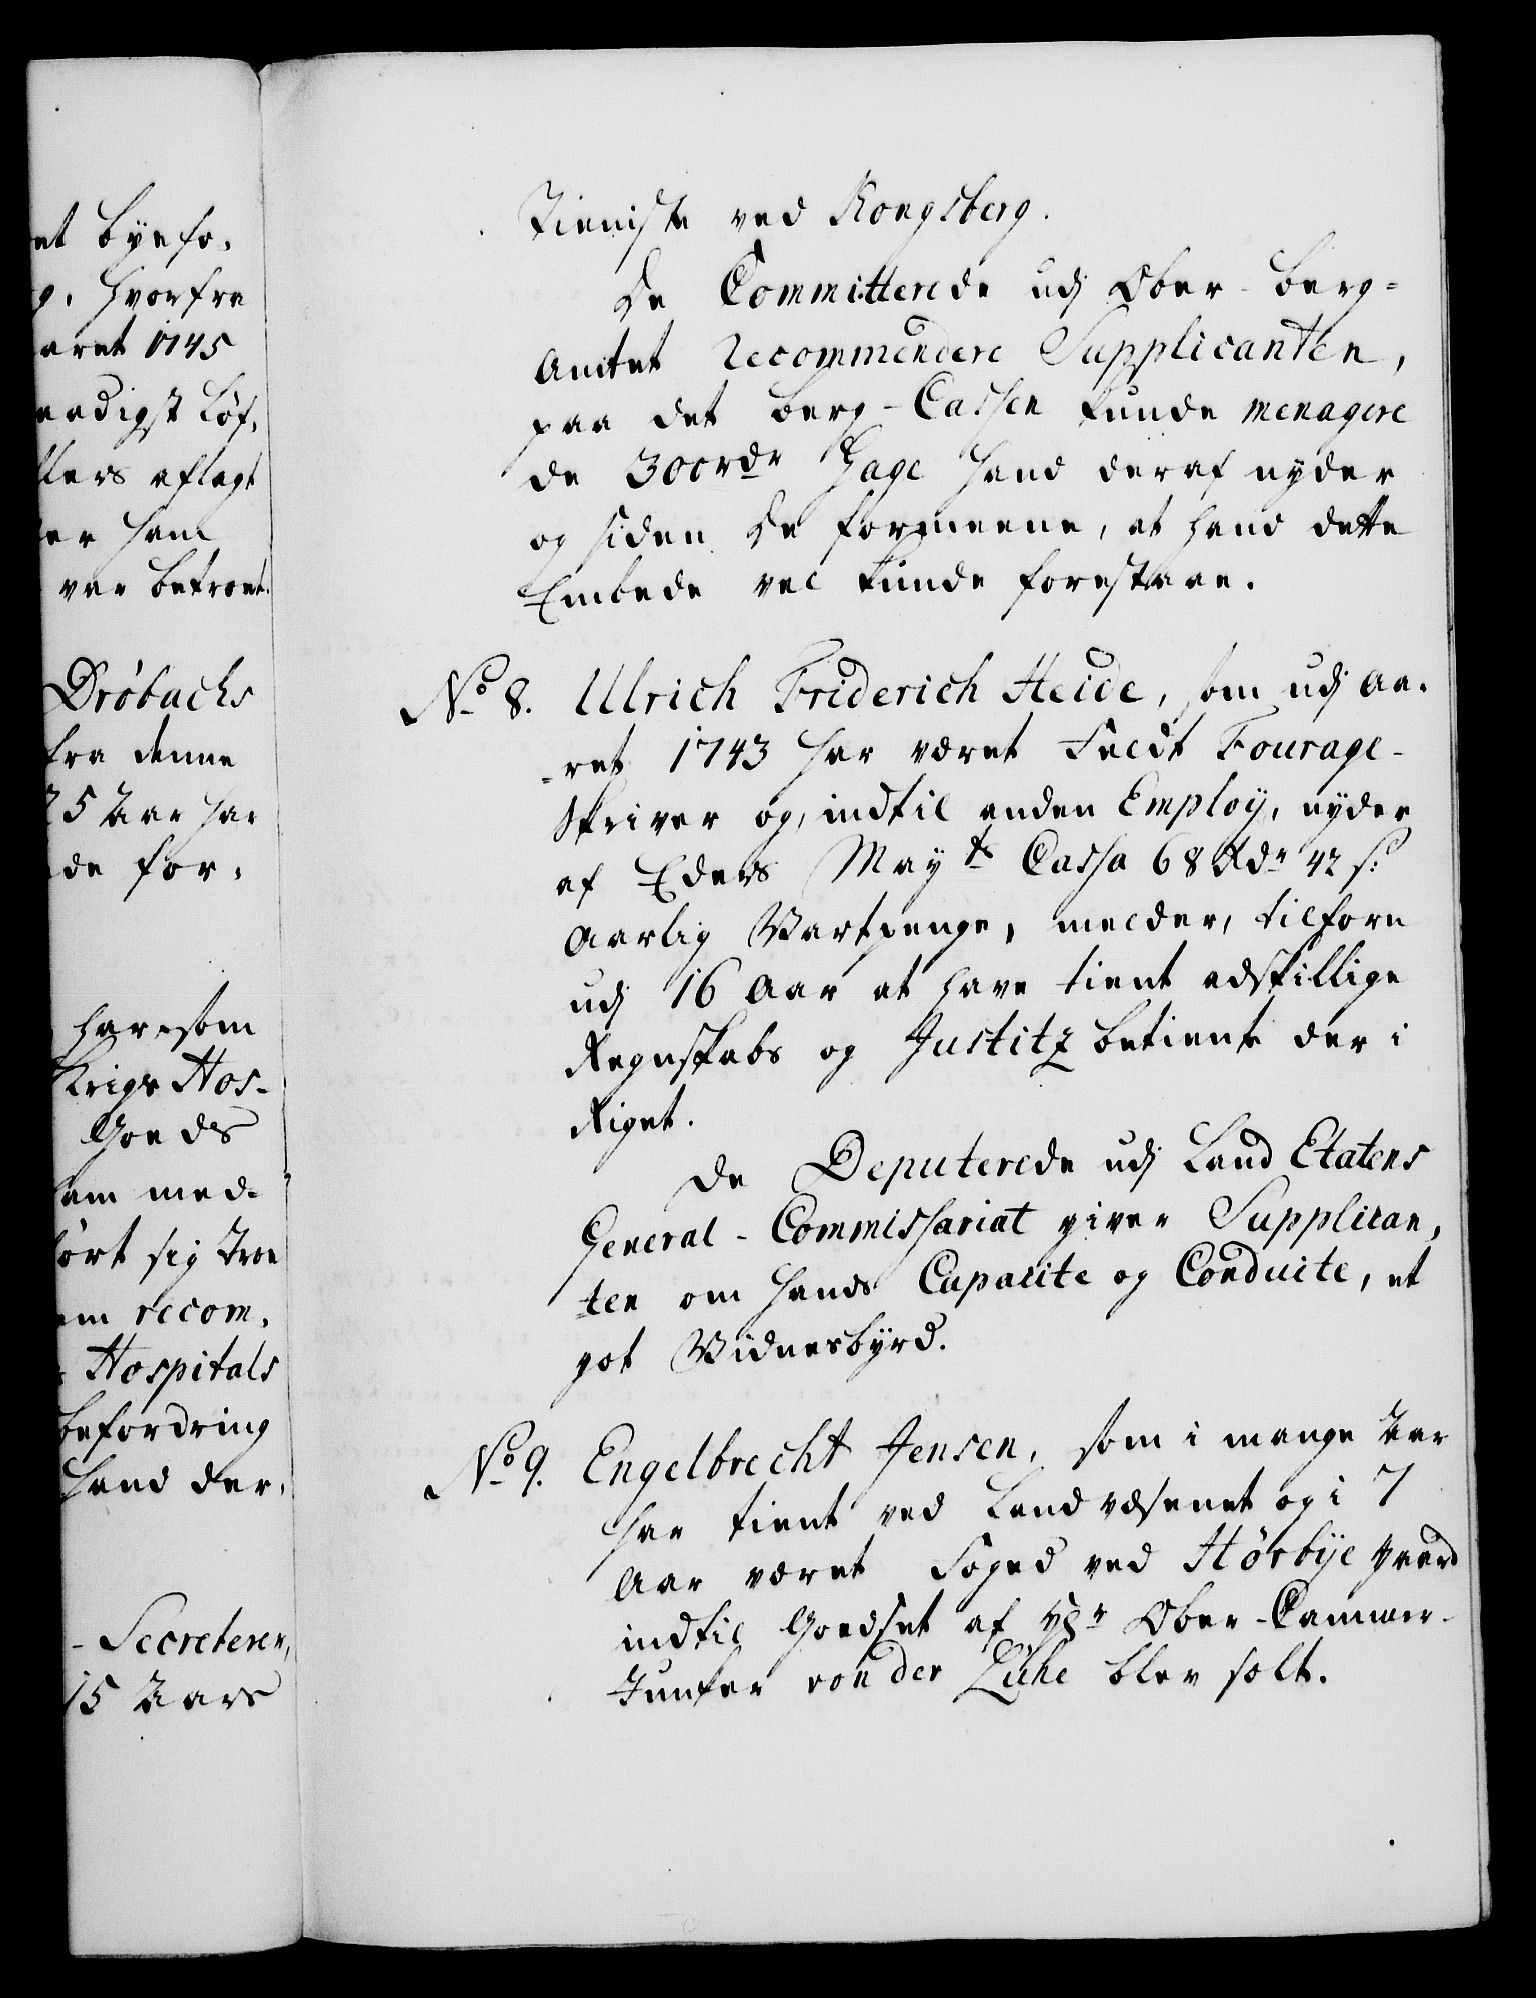 et Byefo,
g, hvorfra
aret 1745
aadigst Løf,
llers aflagt
er ham
var betroet.
Drøbachs
fra denne
25 Aar har
de for,
har, som
Krigs Hos-
Goeds
ham med-
ørt sig Troe
em recom,
Hospitals
befordring
hand der,
- Secreterer,
15 Aars
Tieniste ved Kongsberg.
De Committerede udj Ober-Berg-
Amtet recommendere Supplicanten,
paa det Berg-Cassen kunde menagere
de 300 rdr Gage hand deraf nyder
og siden De formeene, at hand dette
Embede vel kunde forestaae.
No 8. Ulrich Friderich Heide, som udj Aa,
-ret 1743 har været Feldt Fourage-
Skriver og, indtil anden Employ, nyder
af Eders Mayts Cassa 68 Rdr 42 s:
Aarlig Vartpenge, melder, tilforn
udj 16 Aar at have tient adskillige
Regnskabs og Justitz betiente der i
Riget.
De Deputerede udj Land Etatens
General-Commissariat giver Supplican,
ten om hans Capacite og Conduite, et
got Vidnesbyrd.
No 9. Engelbrecht Jensen, som i mange Aar
har tient ved Landvæsenet og i 7
Aar været Foged ved Hörbye gaard
indtil Goedset af Hr Ober-Cammer-
Junker von der Lühe blev solt.